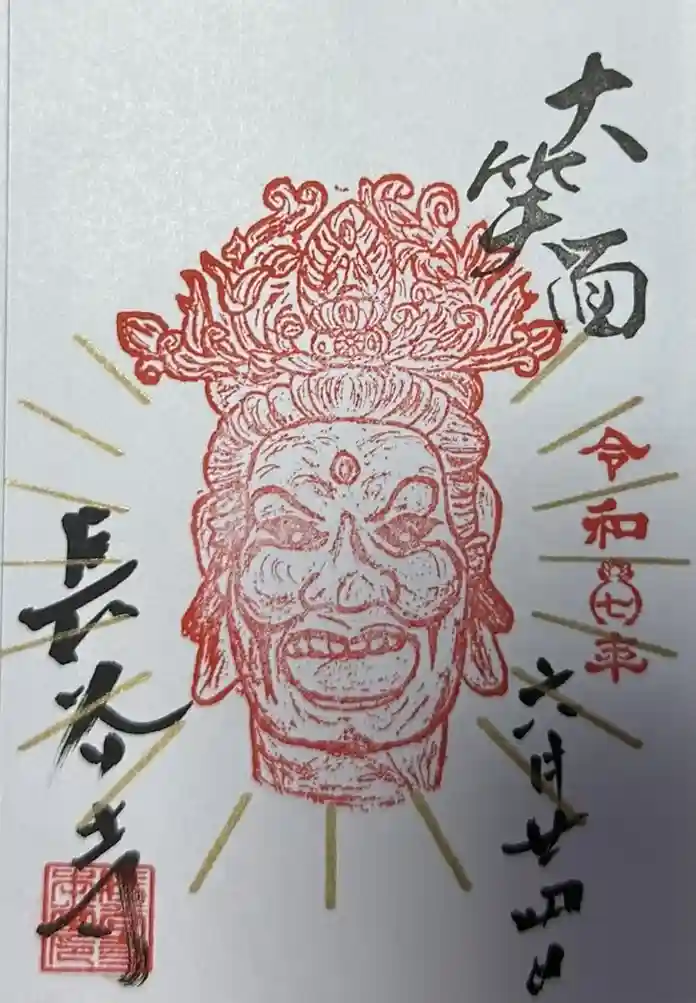 大笑面
令和七年
六 日
長谷寺